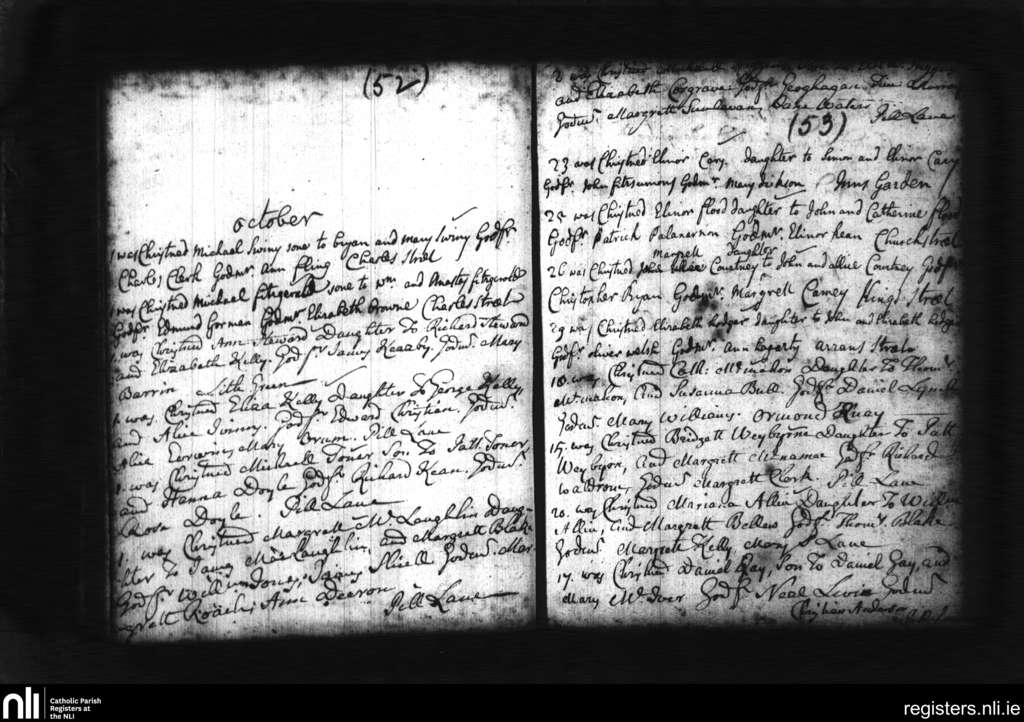 (52)
October
1 was Christned Michael Swiny sone to Bryan and mary Swiny Godfr
Charles Clark Godmr Ann fling Charles Street
1 was Christned Michael fitzgerald sone to Wm and Anasty fitzgerald
Godfr Edmund Gorman Godmr Elizabeth Browne Charles Street
1 way Christned Ann Steward Daughter To Richard Steward
and Elizabeth Kelly Godfr James Godmr Mary
Barrin Green
1. way. Christned Eliza Kelly Daughter To George Kelly
and Alice Godfr Edward Christian. Godmr
Alice Mary Pill Lane
1. was Christned Michaell Toner Son To Patt: Toner
and Hanna Doyle Godfr Richard Kean. Godmr
Rose Doyle. Pill Lane
1. way Christned Margrett Mc Laughlin Daug-
hter To James MacLaughlin, and Margrett Blake
Godfr Will: Jones, James Godmr Mar-
grett Roach; Ann Pill Lane
and Elizabeth Cosgrave Godfr Geoghagan
Godmr Margrett Pill Lane
(53)
23 was Christned Elinor Cary daughter to Simon and Elinor Cary
Godfr John fitzsumons Godmr Mary dickson Inns Garden
25 was Christned Elinor flood daughter to John and Catherine flood
Godfr Patrick Godmr Elinor kean Church Street
margrett daughter
26 was Christned Courtney to John and Courtney Godfr
Christopher Ryan Godmr Margrett Kings Street
29 was Christned Elizabeth Hodger daughter to John and Elizabeth Hodger
Godfr Oliver welsh Godmr Ann arrans Street
18. way Christned Cath: Mcmahon Daughter To Thomr
Mcmahon, and Susanna Bull Godfr Daniel Lynch
Godmr Mary Williams. Ormond Quay
15. way Christned Bridgett Weybyrne Daughter To Patt
Weybyrn, and Margrett Mcnamar Godfr Richard
waldron, Godmr Margrett Clark. Pill Lane
20. way Christned Maria Allin Daughter To William
Allin, and Margrett Bellew Godfr Thomr Blake
Godmr Margrett Kelly, Mary's Lane
17. way Christned Daniel Gay, Son To Daniel Gay, and
Mary Godfr Neal Godmr
Anderson
nli
Catholic Parish
Registers at
the NLI
registers.nli.ie